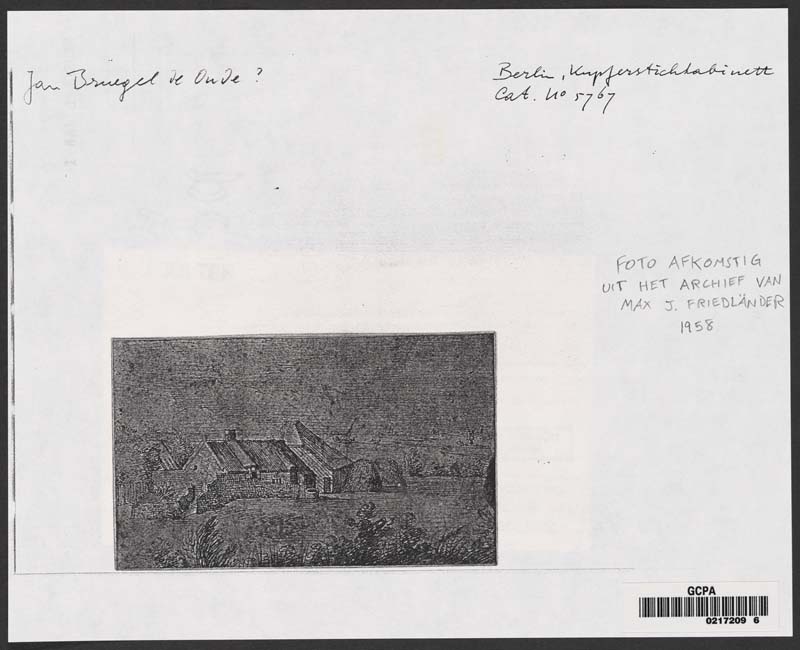 Jan Bruegel de Oude ?
Berlin, Kupferstichkabinett
Cat. No 5767
FOTO AFKOMSTIG
UIT HET ARCHIEF VAN
MAX J. FRIEDLÄNDER
1958
GCPA
0217209 6